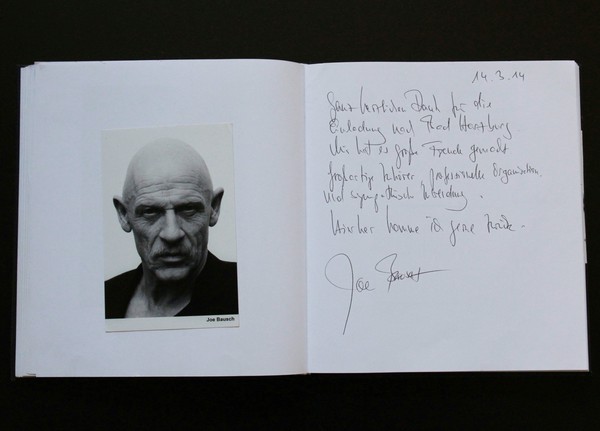 Joe Bausch
14.3.14
Ganz herzlichen Dank für die
Einladung nach Bad Harzburg.
Mir hat es große Freude gemacht
großartige Zuhörer, professionelle Organisation
und sympathische
Hierher komme ich gerne zurück.
Joe Bausch